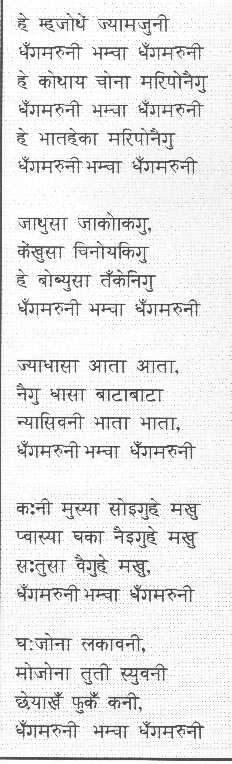 हे म्हजोथें ज्यामजुनी
धँगमरुनी भम्चा धँगमरुनी
हे कोथाय चोना मरिपोनैगु
धँगमरुनी भम्चा धँगमरुनी
हे भातहेका मरिपोनैगु
धँगमरुनी भम्चा धँगमरुनी
जाथुसा जाकोाकगु,
केंखुसा चिनोयकिगु
हे बोब्युसा तँकेनिगु
धँगमरुनी भम्चा धँगमरुनी
ज्याधासा आता आता,
नैगु धासा बाटाबाटा
न्यासिवनी भाता भाता,
धँगमरुनी भम्चा धँगमरुनी
क:नी मुस्या सोइगुहे मखु
प्वास्या घका नैइगुहे मखु
स:तुसा वैगुहे मखु,
धँगमरुनी भम्चा धँगमरुनी
घ:जोना लकावनी,
मोजोना तुती स्युवनी
छेयाखँ फुकँ कनी,
धँगमरुनी भम्चा धँगमरुनी